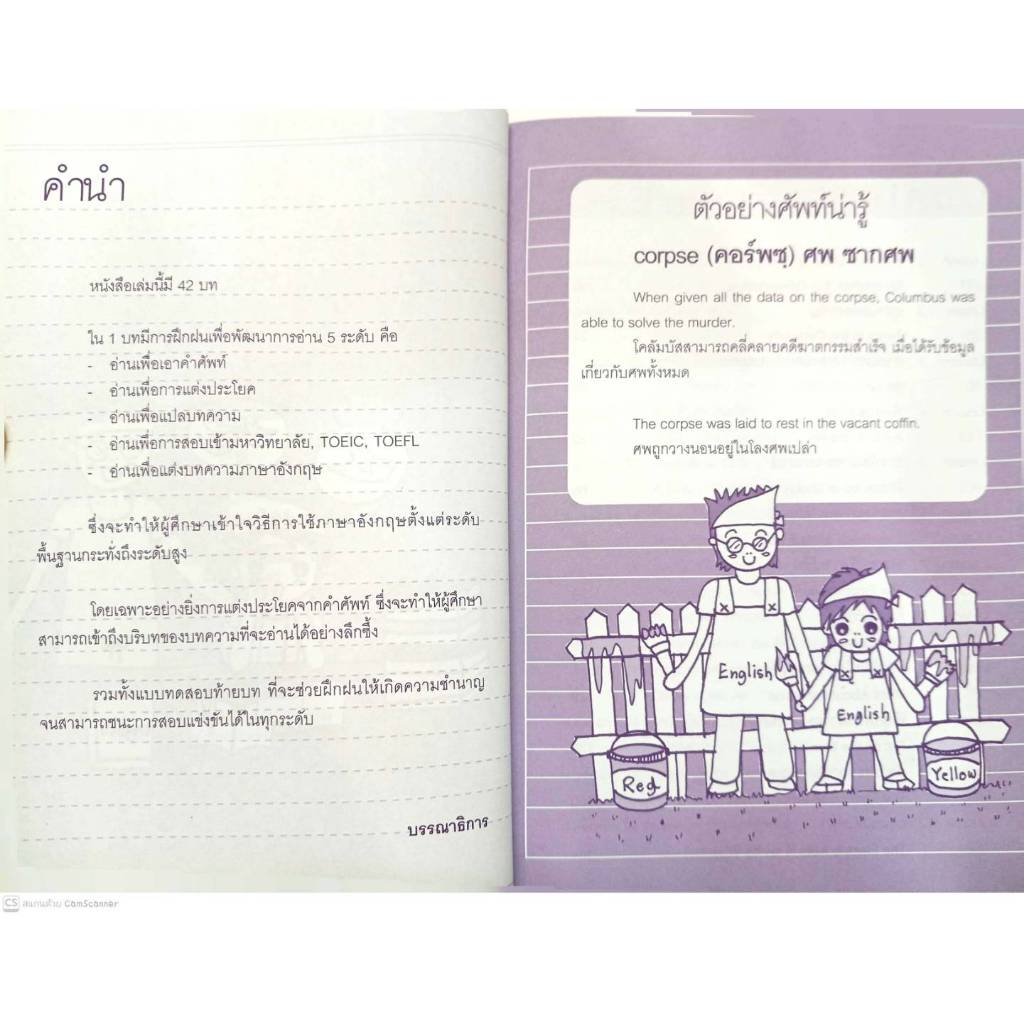 คำนำ
หนังสือเล่มนี้มี 42 บท
ใน 1 บทมีการฝึกฝนเพื่อพัฒนาการอ่าน 5 ระดับ คือ
- อ่านเพื่อเอาคำศัพท์
- อ่านเพื่อการแต่งประโยค
- อ่านเพื่อแปลบทความ
- อ่านเพื่อการสอบเข้ามหาวิทยาลัย, TOEIC, TOEFL
- อ่านเพื่อแต่งบทความภาษาอังกฤษ
ซึ่งจะทำให้ผู้ศึกษาเข้าใจวิธีการใช้ภาษาอังกฤษตั้งแต่ระดับ
พื้นฐานกระทั่งถึงระดับสูง
โดยเฉพาะอย่างยิ่งการแต่งประโยคจากคำศัพท์ ซึ่งจะทำให้ผู้ศึกษา
สามารถเข้าถึงบริบทของบทความที่จะอ่านได้อย่างลึกซึ้ง
รวมทั้งแบบทดสอบท้ายบท ที่จะช่วยฝึกฝนให้เกิดความชำนาญ
จนสามารถชนะการสอบแข่งขันได้ในทุกระดับ
บรรณาธิการ
CS สแกนด้วย CamScanner
ตัวอย่างศัพท์น่ารู้
corpse (คอร์พซฺ) ศพ ซากศพ
When given all the data on the corpse, Columbus was
able to solve the murder.
โคลัมบัสสามารถคลี่คลายคดีฆาตกรรมสำเร็จ เมื่อได้รับข้อมูล
เกี่ยวกับศพทั้งหมด
The corpse was laid to rest in the vacant coffin.
ศพถูกวางนอนอยู่ในโลงศพเปล่า
English
English
Red
Yellow